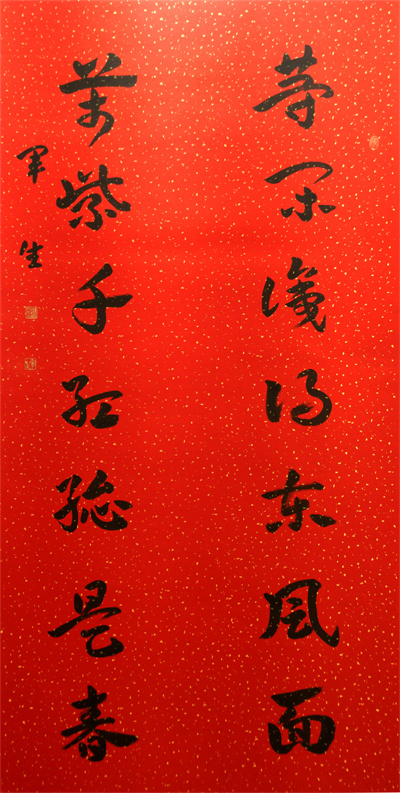 等闲识得东风面
万紫千红总是春
军生